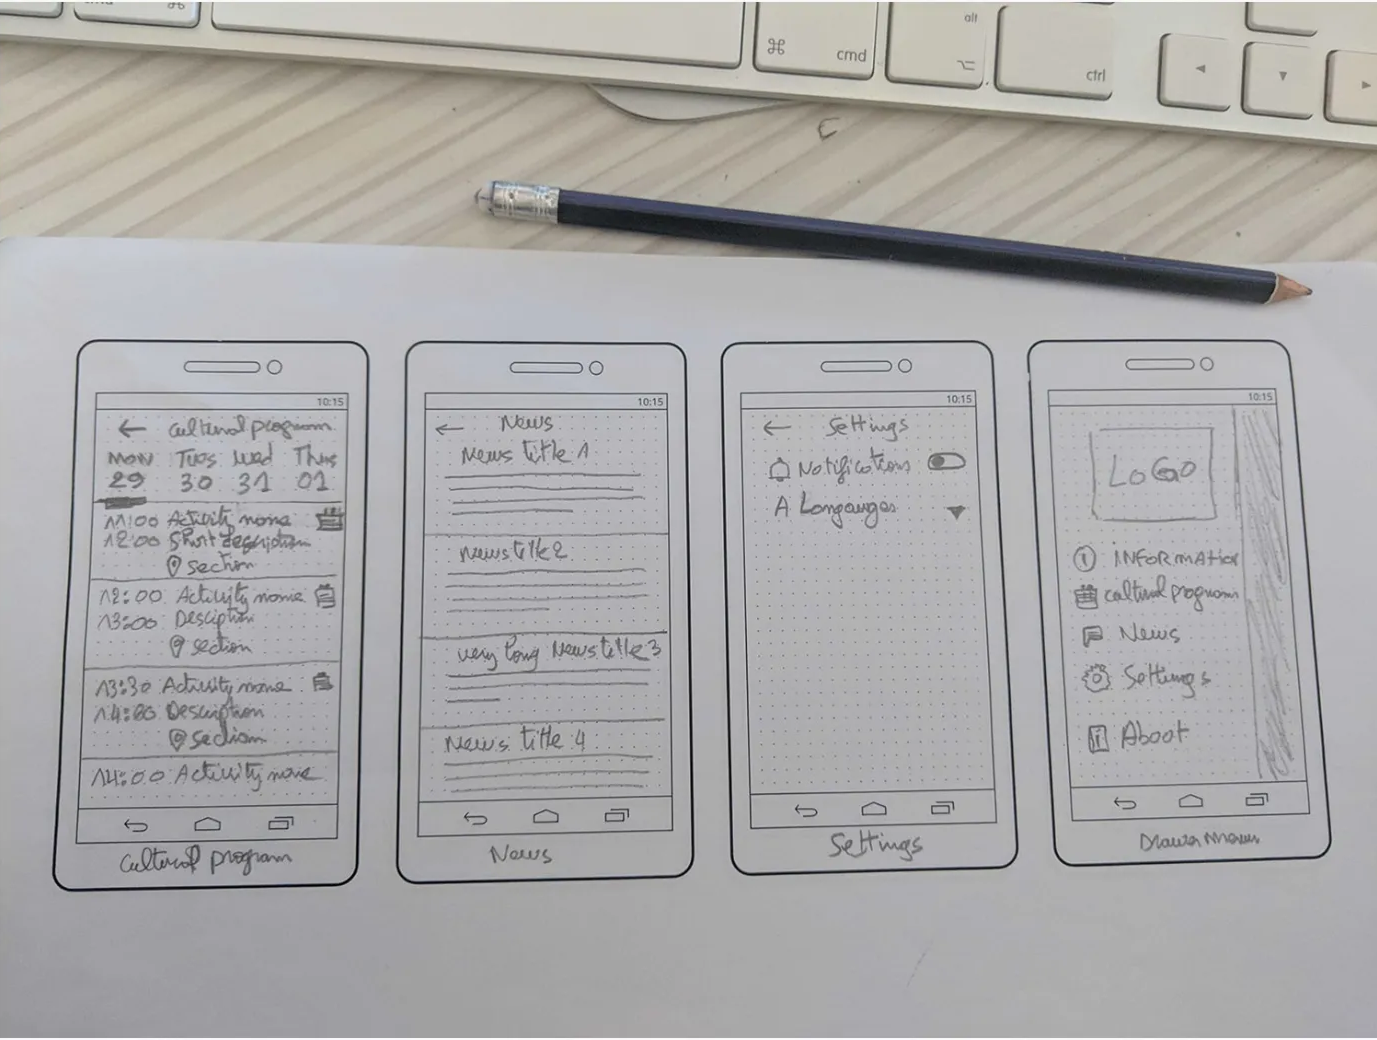 cmd ⌘
⌘ cmd
alt
⌥
ctrl
10:15
← Cultural program
MON Tues Wed Thus
29 30 31 01
11:00 Activity name
12:00 Short description
section
12:00 Activity name
13:00 Desciption
section
13:30 Activity name
14:00 Description
section
14:00 Activity name
Cultural program
10:15
← News
News title 1
News title 2
very long News title 3
News title 4
News
10:15
← Settings
Notifications
A Langauges
Settings
10:15
LOGO
INFORMATION
cultural program
News
Settings
About